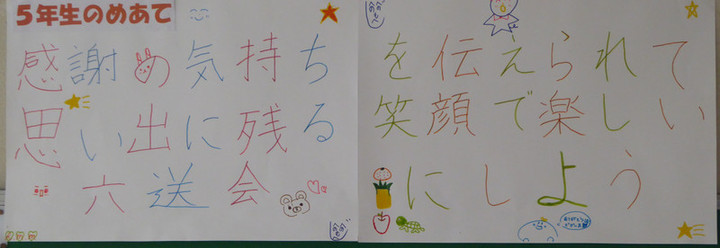 5年生のめあて
感謝の気持ちを伝えられて
思い出に残る笑顔で楽しい
六送会にしよう